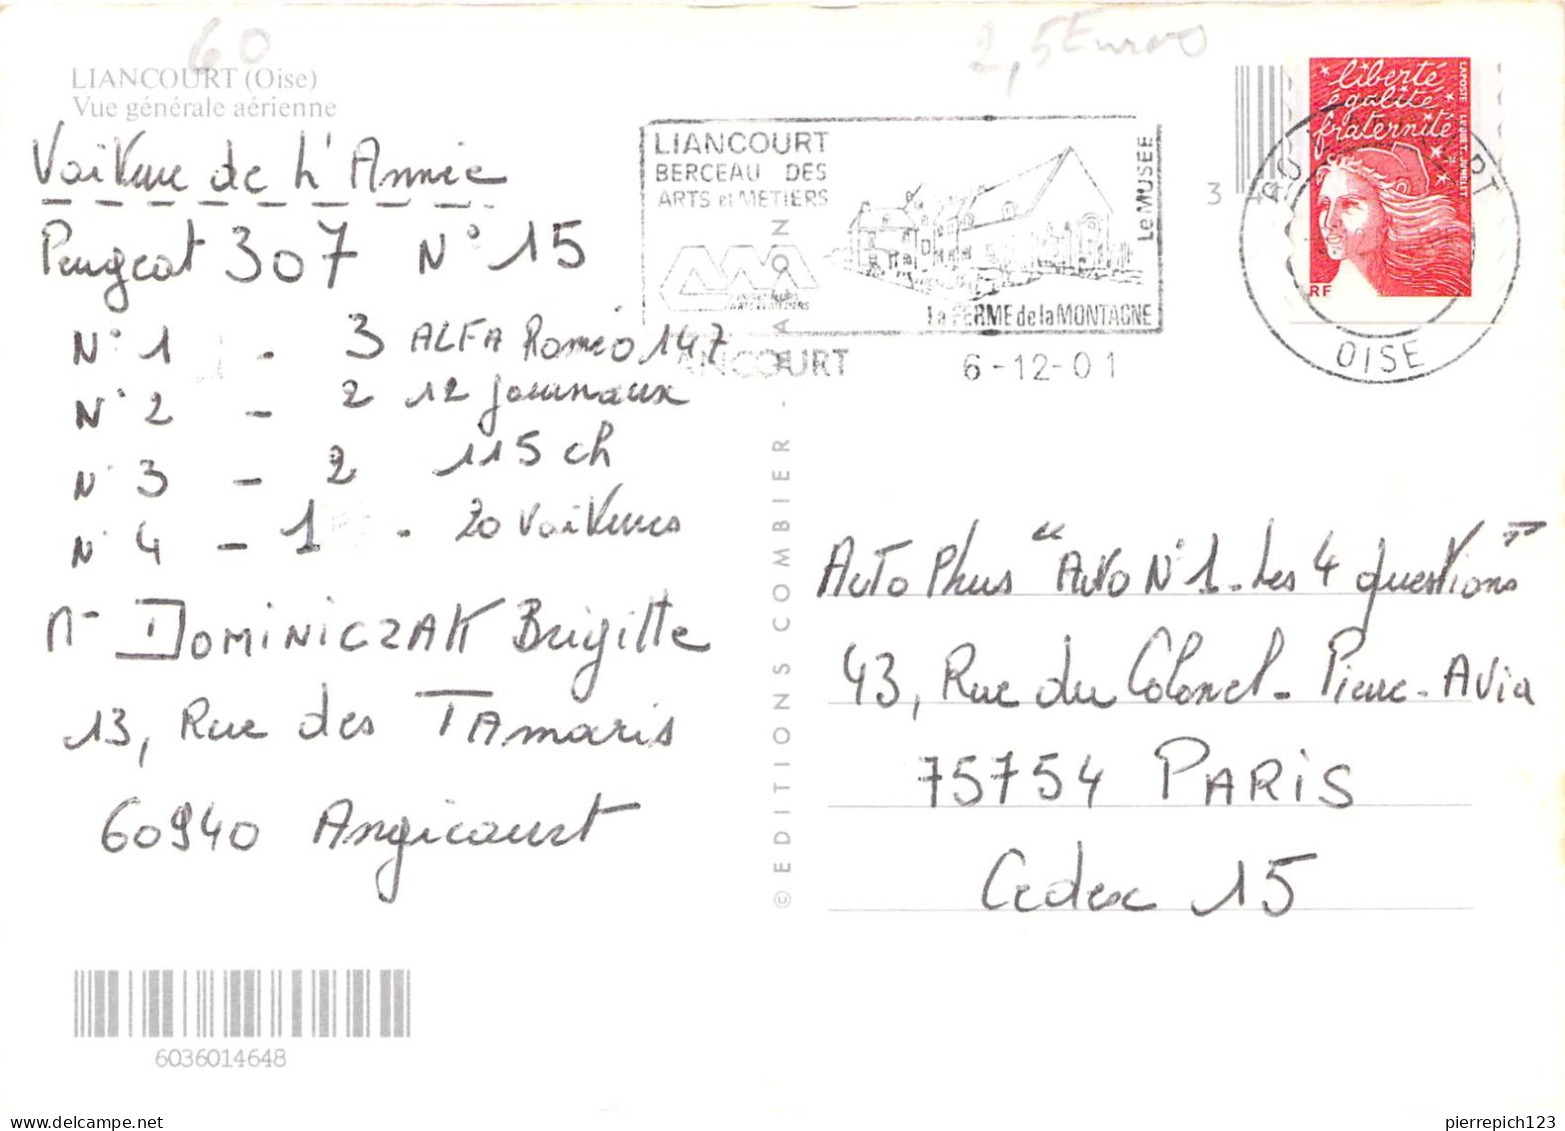 60
2,5 Euro
LIANCOURT (Oise)
Vue générale aérienne
Voiture de L'Année
Peugeot 307 N° 15
N° 1 - 3 ALFA Roméo 147
N° 2 - 2 12 journaux
N° 3 - 2 115 ch
N° 4 - 1 - 20 voitures
DOMINICZAK Brigitte
13, Rue des TAmaris
60940 Angicourt
6036014648
© EDITIONS COMBIER -
LIANCOURT
BERCEAU DES
ARTS et METIERS
Le MUSEE
La FERME de la MONTAGNE
ANCOURT 6-12-01
OISE
liberté
égalité
fraternité
LA POSTE
RF
Auto Plus "Auto N°1 - Les 4 questions"
43, Rue du Colonel - Pierre - Avia
75754 PARIS
Cedex 15
pierrepich123